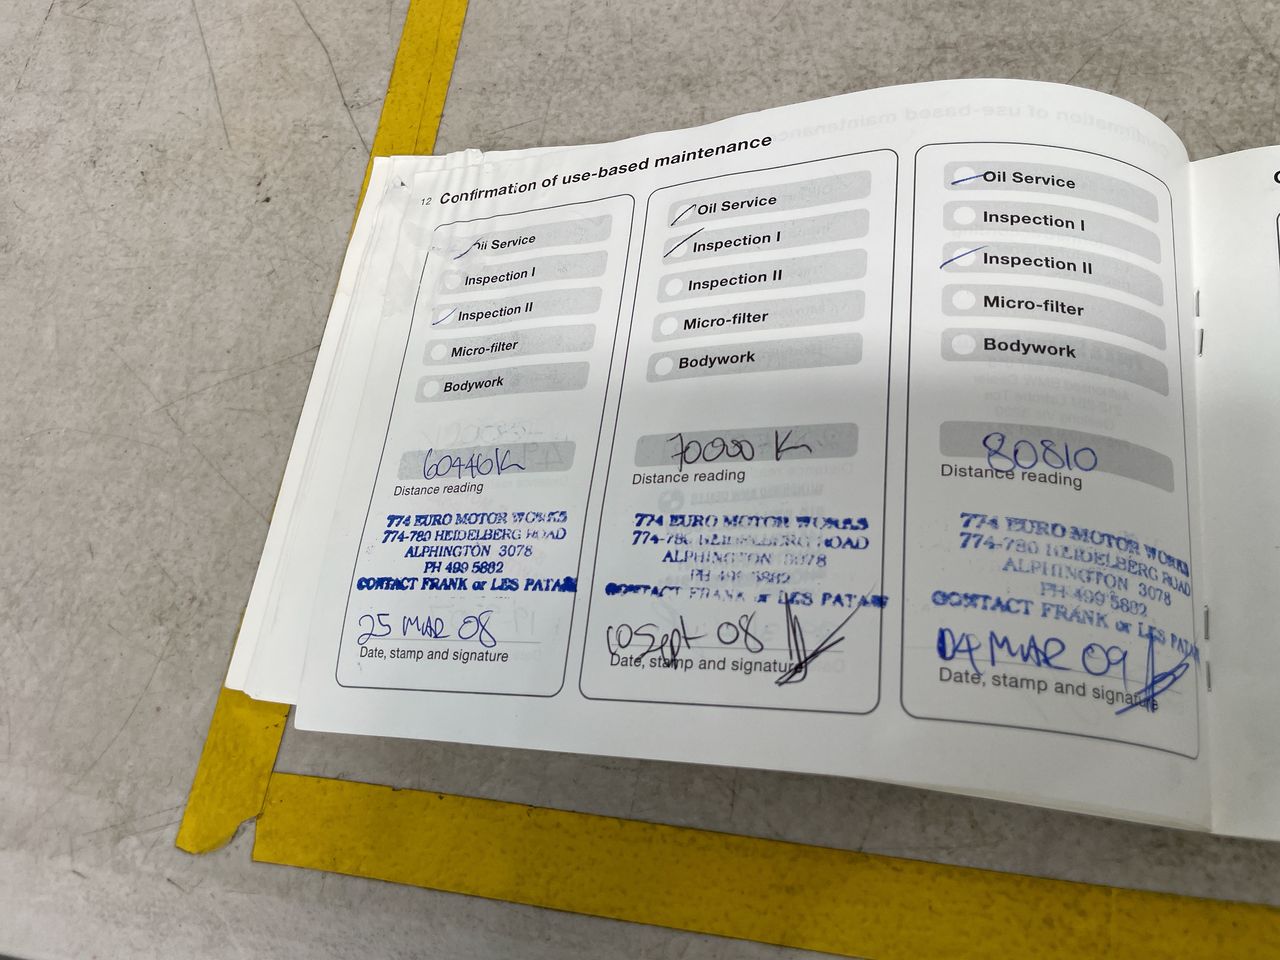 12 Confirmation of use-based maintenance
Oil Service
Inspection I
Inspection II
Micro-filter
Bodywork
60446K
Distance reading
774 EURO MOTOR WORKS
774-780 HEIDELBERG ROAD
ALPHINGTON 3078
PH 499 5882
CONTACT FRANK or LES PATAS
25 MAR 08
Date, stamp and signature
Oil Service
Inspection I
Inspection II
Micro-filter
Bodywork
70000 K
Distance reading
774 EURO MOTOR WORKS
774-780 HEIDELBERG ROAD
ALPHINGTON 3078
PH 499 5882
CONTACT FRANK or LES PATAS
Sept 08
Date, stamp and signature
Oil Service
Inspection I
Inspection II
Micro-filter
Bodywork
80810
Distance reading
774 EURO MOTOR WORKS
774-780 HEIDELBERG ROAD
ALPHINGTON 3078
PH 499 5882
CONTACT FRANK or LES PATAS
04 MAR 09
Date, stamp and signature